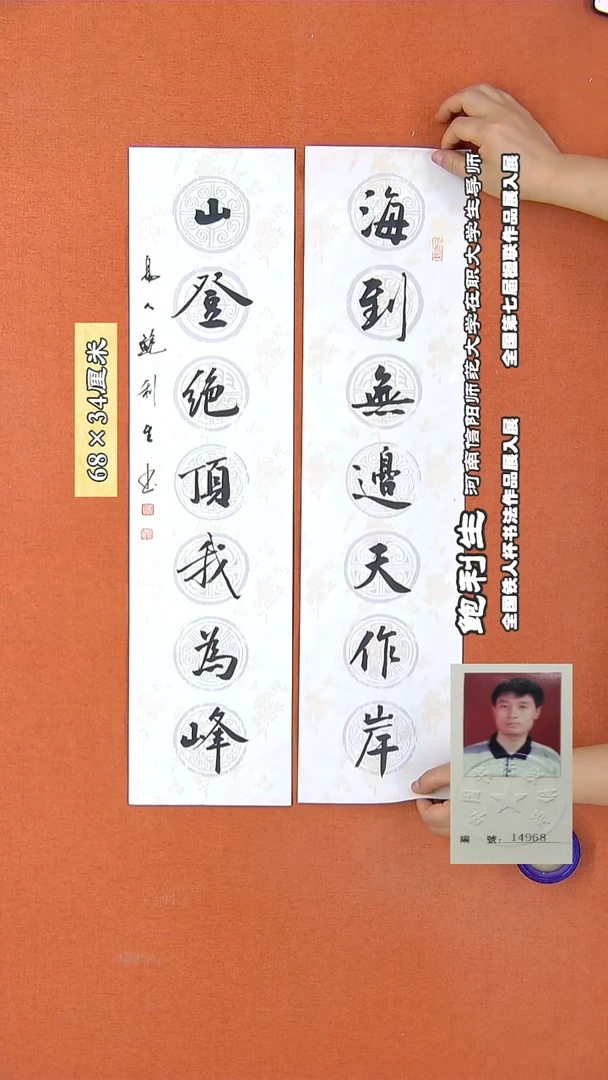 海到無邊天作岸
山登絶頂我為峰
息人鲍利生书
68×34厘米
鲍利生 河南信阳师范大学在职大学生导师
全国铁人杯书法作品展入展 全国第七届楹联作品展入展
編 號：14968